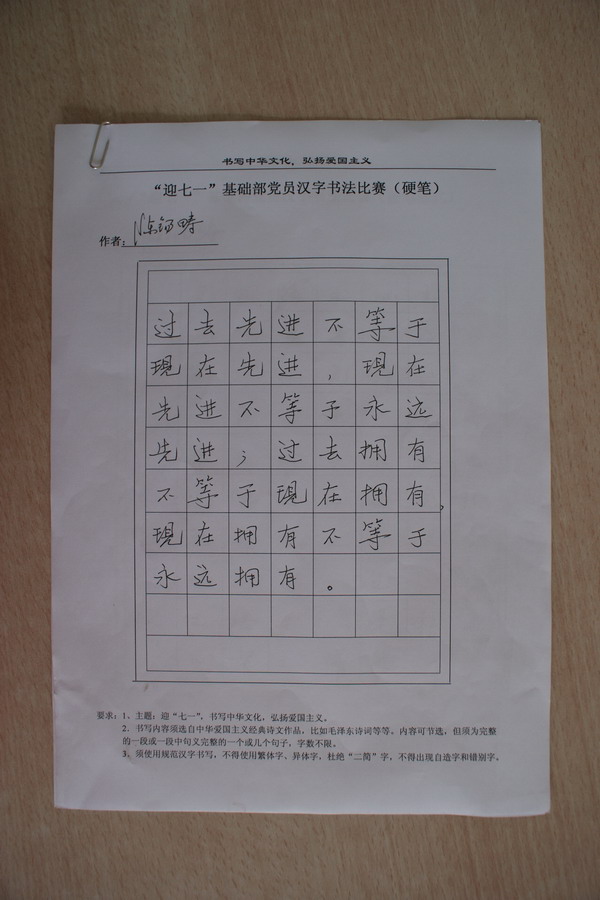 书写中华文化，弘扬爱国主义
“迎七一”基础部党员汉字书法比赛（硬笔）
作者：陈
过去先进不等于
现在先进，现在
先进不等于永远
先进；过去拥有
不等于现在拥有，
现在拥有不等于
永远拥有。
要求：1、主题：迎“七一”，书写中华文化，弘扬爱国主义。
2、书写内容须选自中华爱国主义经典诗文作品，比如毛泽东诗词等等。内容可节选，但须为完整
的一段或一段中句义完整的一个或几个句子，字数不限。
3、须使用规范汉字书写，不得使用繁体字、异体字，杜绝“二简”字，不得出现自造字和错别字。